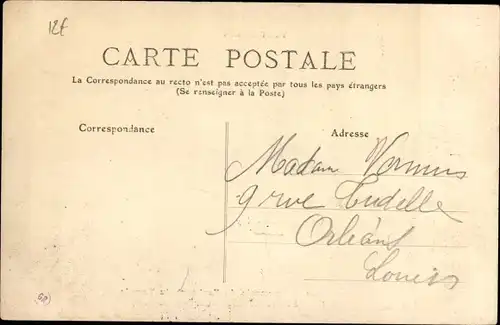 12f
CARTE POSTALE
La Correspondance au recto n'est pas acceptée par tous les pays étrangers
(Se renseigner à la Poste)
Correspondance
Adresse
Madame
9 rue Eudelle
Orléans